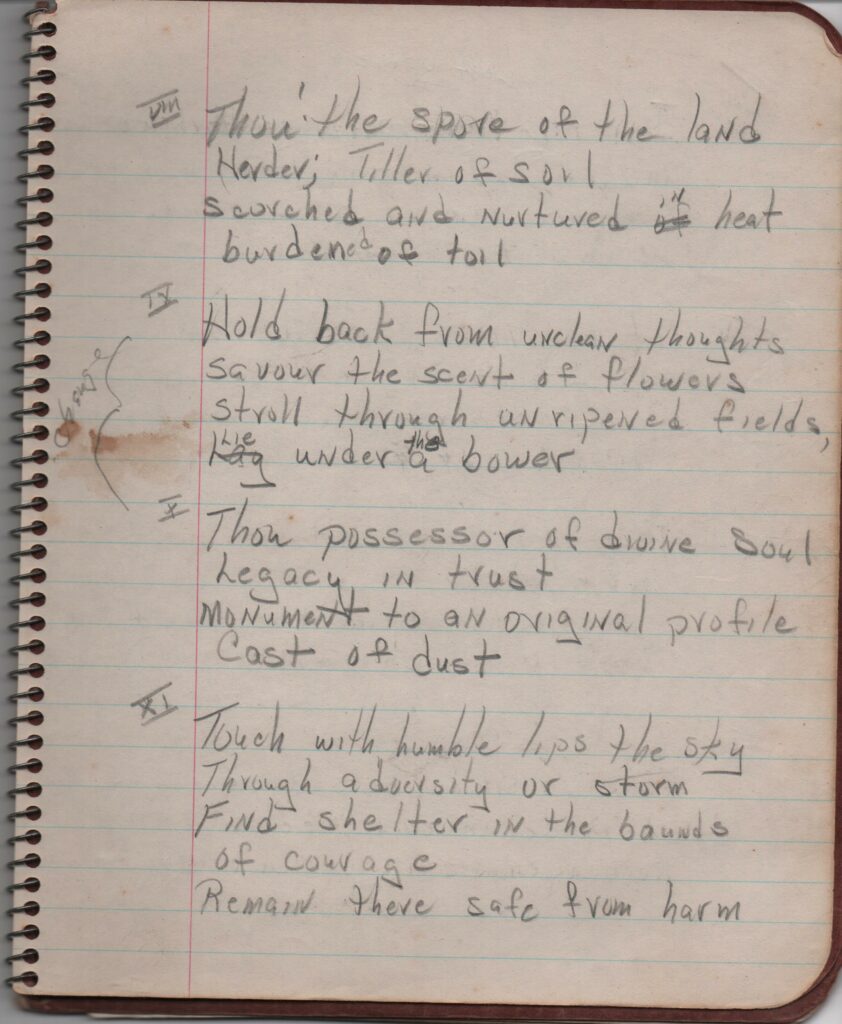 VIII Thou' the spore of the land
Herder; Tiller of soil
scorched and nurtured of in heat
burdened of toil
IX
Hold back from unclean thoughts
change savour the scent of flowers
stroll through unripened fields,
Lay Lie under a the bower
X
Thou possessor of divine soul
Legacy in trust
Monument to an original profile
Cast of dust
XI
Touch with humble lips the sky
Through adversity or storm
Find shelter in the baunds
of courage
Remain there safe from harm